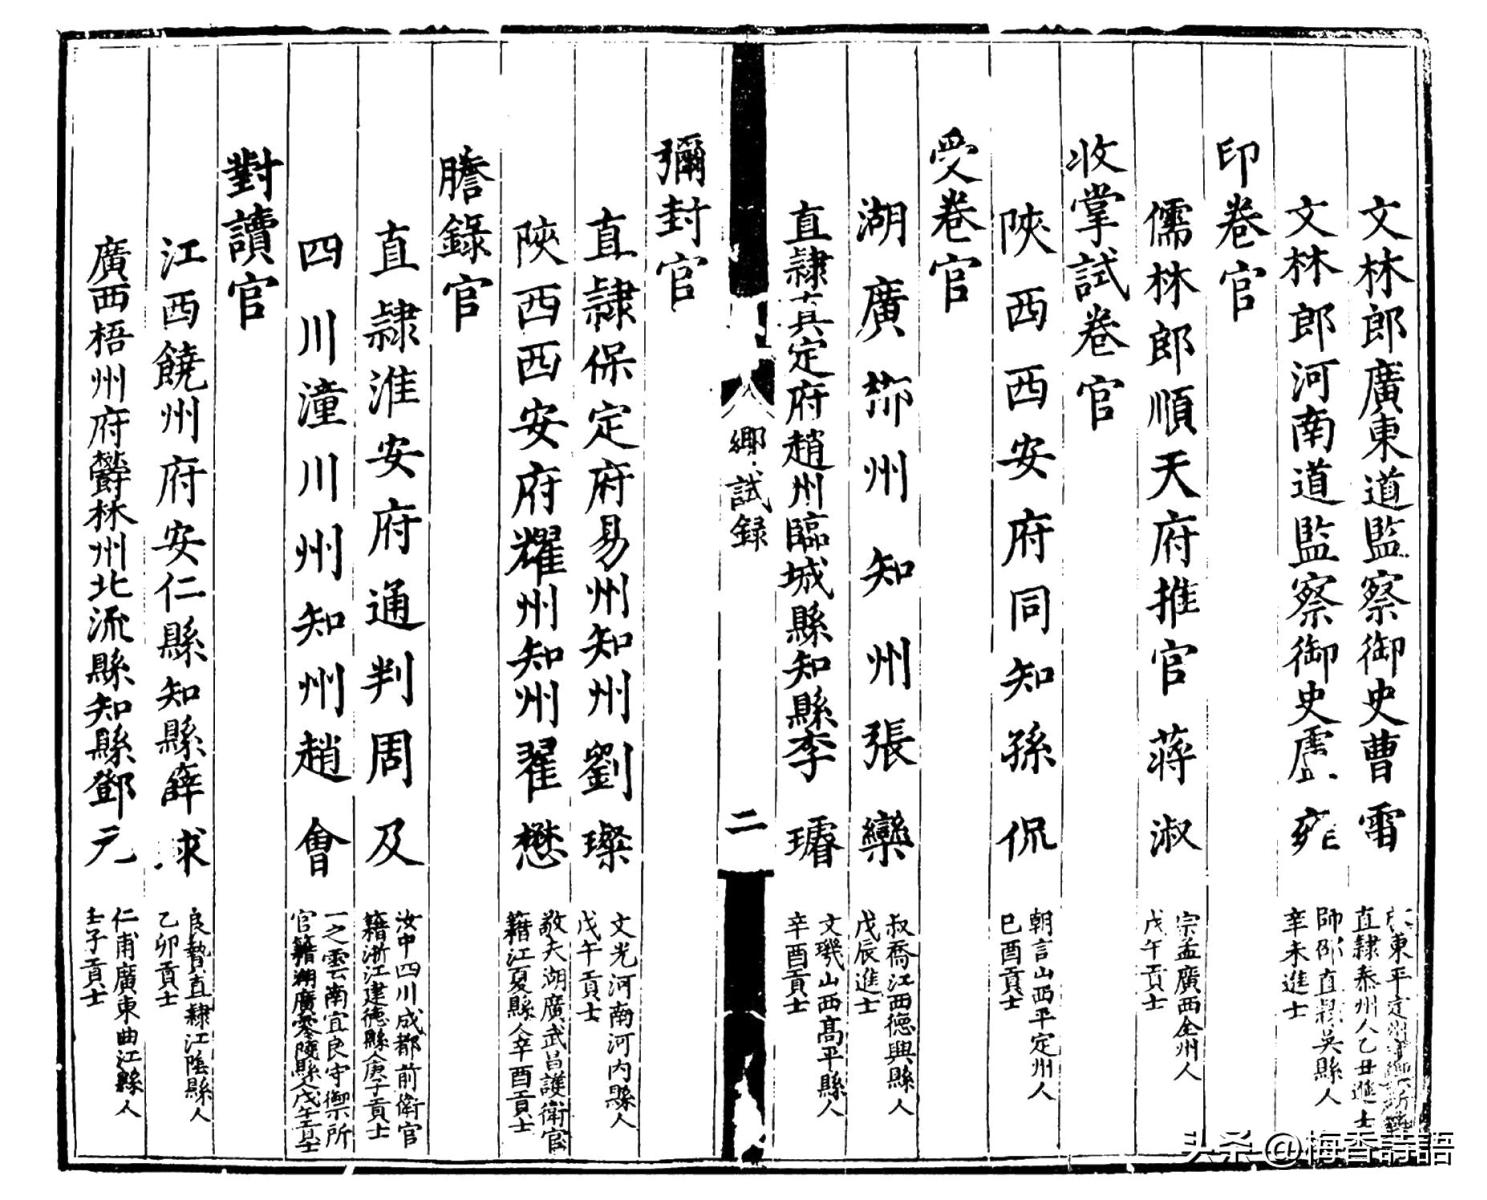 文林郎廣東道監察御史曹雷
東平定州守禦所
直隸泰州人乙丑進士
文林郎河南道監察御史盧雍
師邵直隸吳縣人
辛未進士
印卷官
儒林郎順天府推官蔣淑
宗孟廣西全州人
戊午貢士
收掌試卷官
陝西西安府同知孫侃
朝言山西平定州人
己酉貢士
受卷官
湖廣郴州知州張欒
叔喬江西德興縣人
戊辰進士
直隸真定府趙州臨城縣知縣李璿
文璣山西高平縣人
辛酉貢士
鄉試錄
二
彌封官
直隸保定府易州知州劉璨
文光河南河內縣人
戊午貢士
陝西西安府耀州知州翟懋
敬夫湖廣武昌護衛官
籍江夏縣人辛酉貢士
謄錄官
直隸淮安府通判周及
汝中四川成都前衛官
籍浙江建德縣人庚子貢士
四川潼川州知州趙會
一之雲南宜良守禦所
官籍湖廣零陵縣人戊午貢士
對讀官
江西饒州府安仁縣知縣薛球
良贄直隸江陰縣人
乙卯貢士
廣西梧州府鬱林州北流縣知縣鄧元
仁甫廣東曲江縣人
壬子貢士
头条@梅香詩語